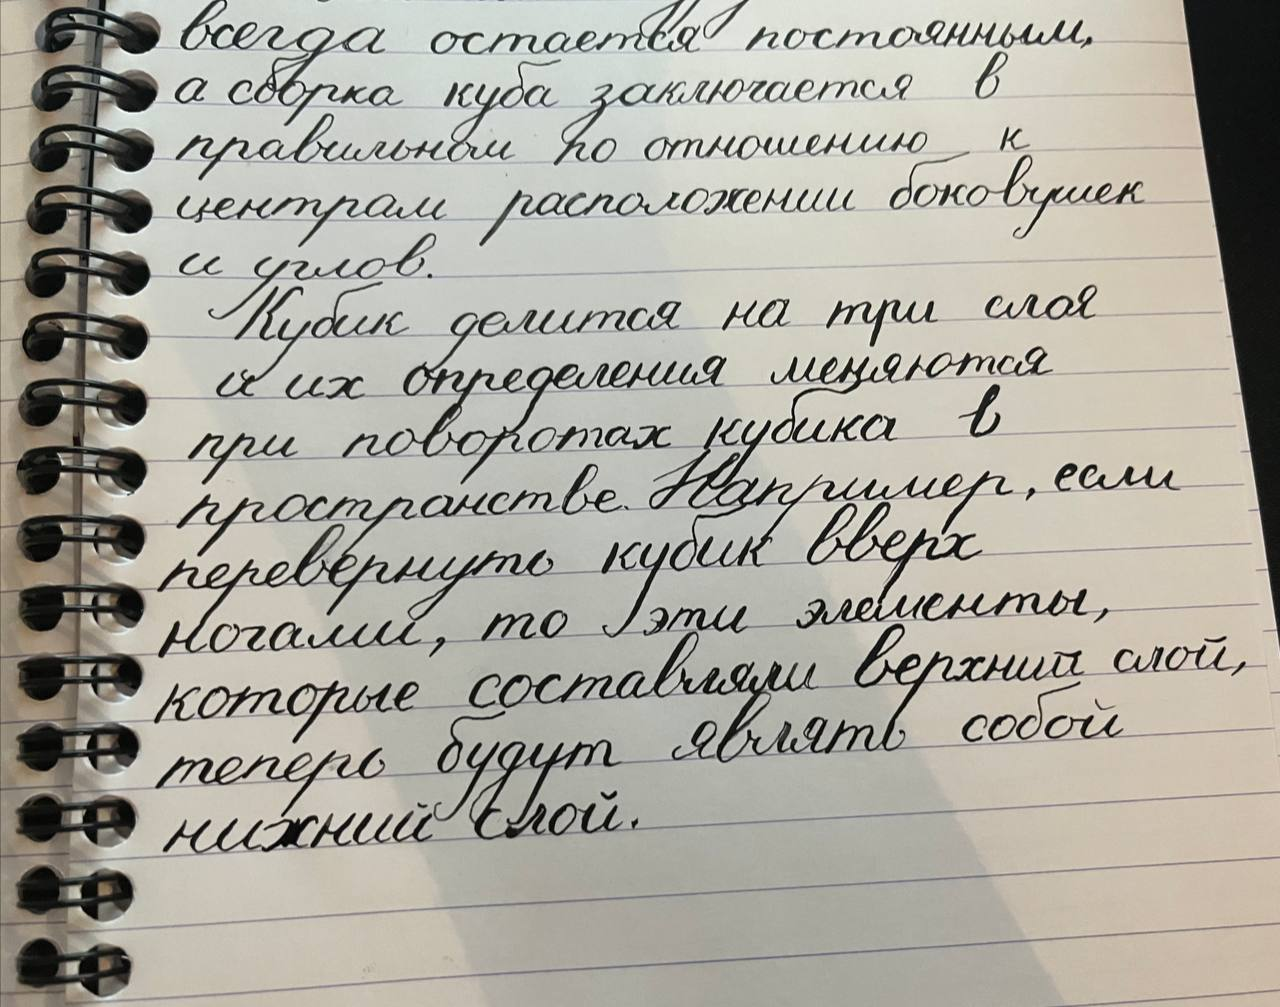 всегда остается постоянным,
а сборка куба заключается в
правильном по отношению к
центрам расположении боковушек
и углов.
Кубик делится на три слоя
и их определения меняются
при поворотах кубика в
пространстве. Например, если
перевернуть кубик вверх
ногами, то эти элементы,
которые составляли верхний слой,
теперь будут являть собой
нижний слой.